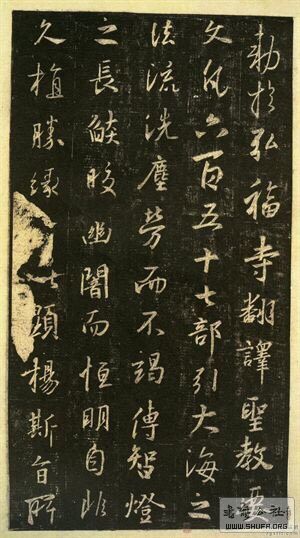 勅於弘福寺翻譯聖教要
文凡六百五十七部引大海之
法流洗塵勞而不竭傳智燈
之長焰皎幽闇而恒明自非
久植勝緣以顯揚斯旨所
书法公社
WWW.SHUFA.ORG